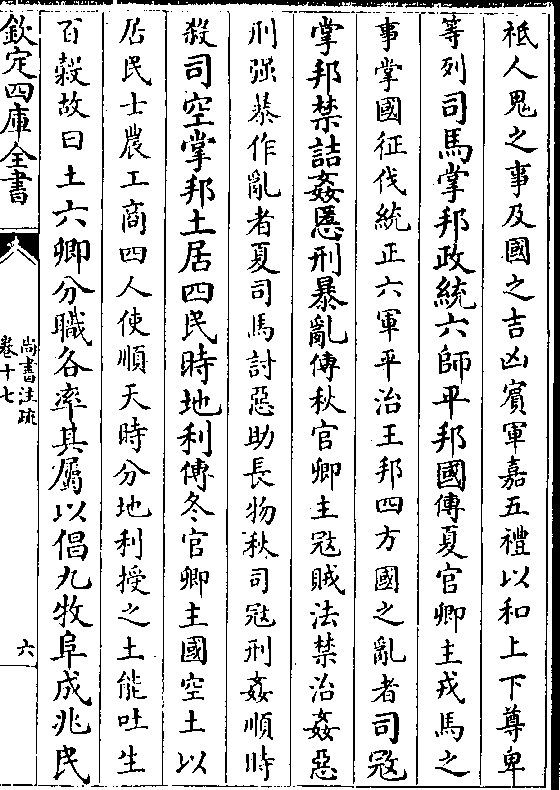 祇人鬼之事及國之吉凶賓軍嘉五禮以和上下尊卑
等列司馬掌邦政統六師平邦國傳夏官卿主戎馬之
事掌國征伐統正六軍平治王邦四方國之亂者司冦
掌邦禁詰姦慝刑暴亂傳秋官卿主冦賊法禁治姦惡
刑强暴作亂者夏司馬討惡助長物秋司冦刑姦順時
殺司空掌邦土居四民時地利傳冬官卿主國空土以
居民士農工商四人使順天時分地利授之土能吐生
百穀故曰土六卿分職各率其屬以倡九牧阜成兆民
欽定四庫全書
尚書注疏
卷十七
六